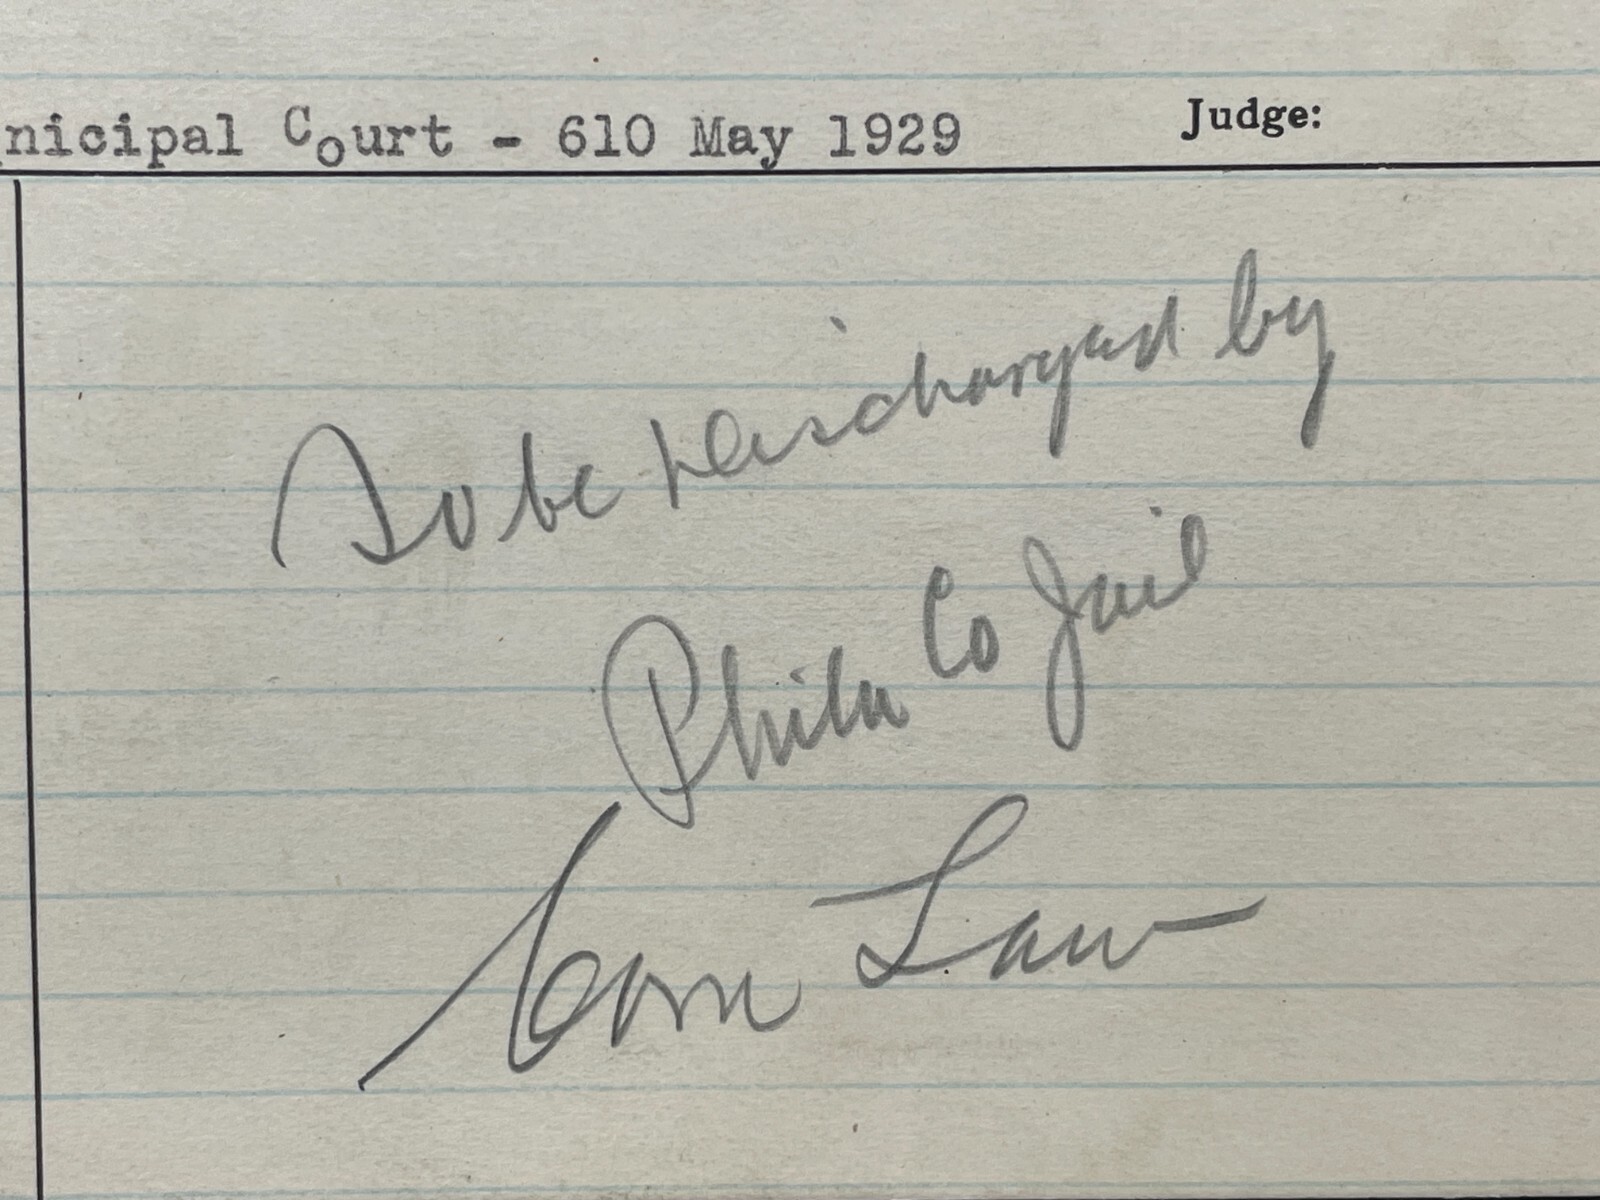 nicipal Court - 610 May 1929 Judge:
To be Discharged by
Phila Co Jail
Com Law